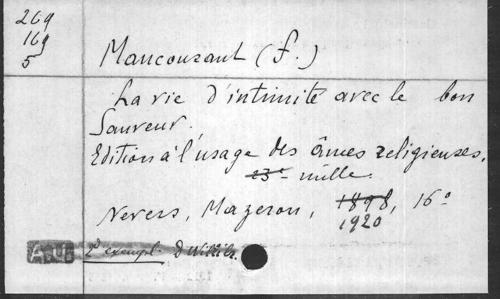 269
169
5
Maucourant (f.)
La vie d'intimité avec le bon
Sauveur.
Edition à l'usage des âmes religieuses.
23e mille.
Nevers, Mazeron, 1898, 16°
1920
2e exempl.